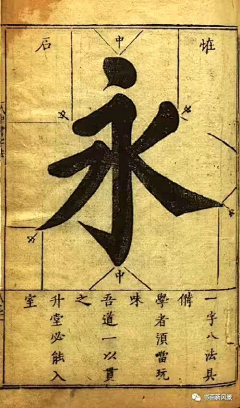 中
永
中
一字八法具
備
學者須當玩
味
吾道一以貫
之
升堂必能入
室